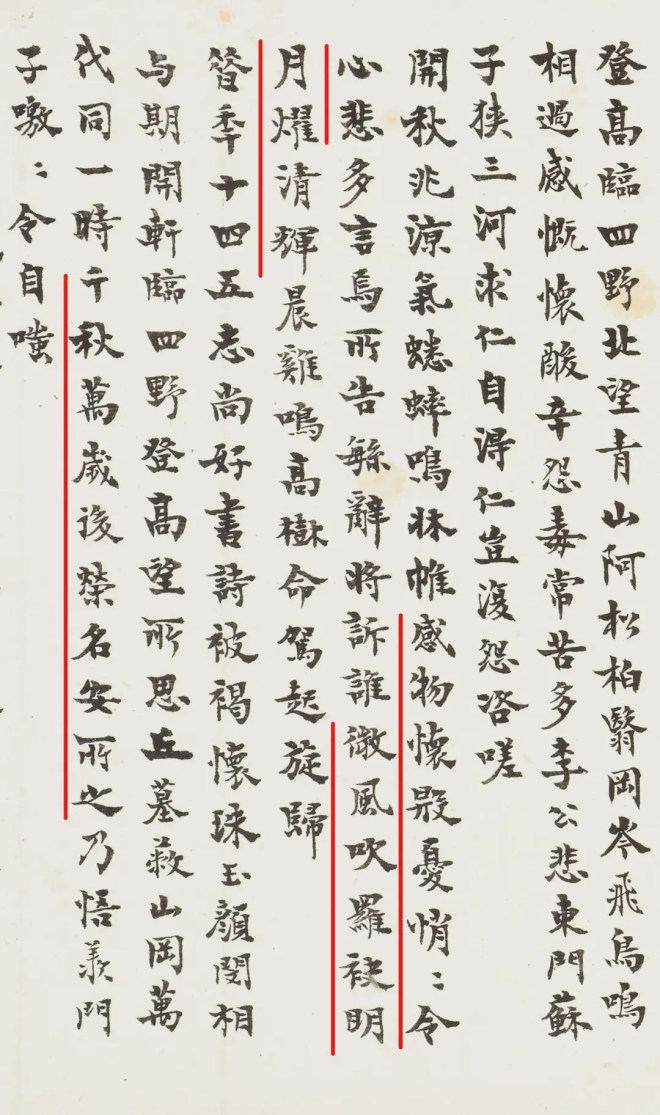 登高臨四野北望青山阿松柏翳岡岑飛鳥鳴
相過感慨懷酸辛怨毒常苦多李公悲東門蘇
子狹三河求仁自得仁豈復怨咨嗟
開秋兆涼氣蟋蟀鳴牀帷感物懷殷憂悄〻令
心悲多言焉所告繇辭將訴誰微風吹羅袂明
月燿清輝晨雞鳴高樹命駕起旋歸
昝季十四五志尚好書詩被褐懷珠玉顏閔相
与期開軒臨四野登高望所思丘墓蔽山岡萬
代同一時千秋萬歲後榮名安所之乃悟羨門
子噭〻令自嗤